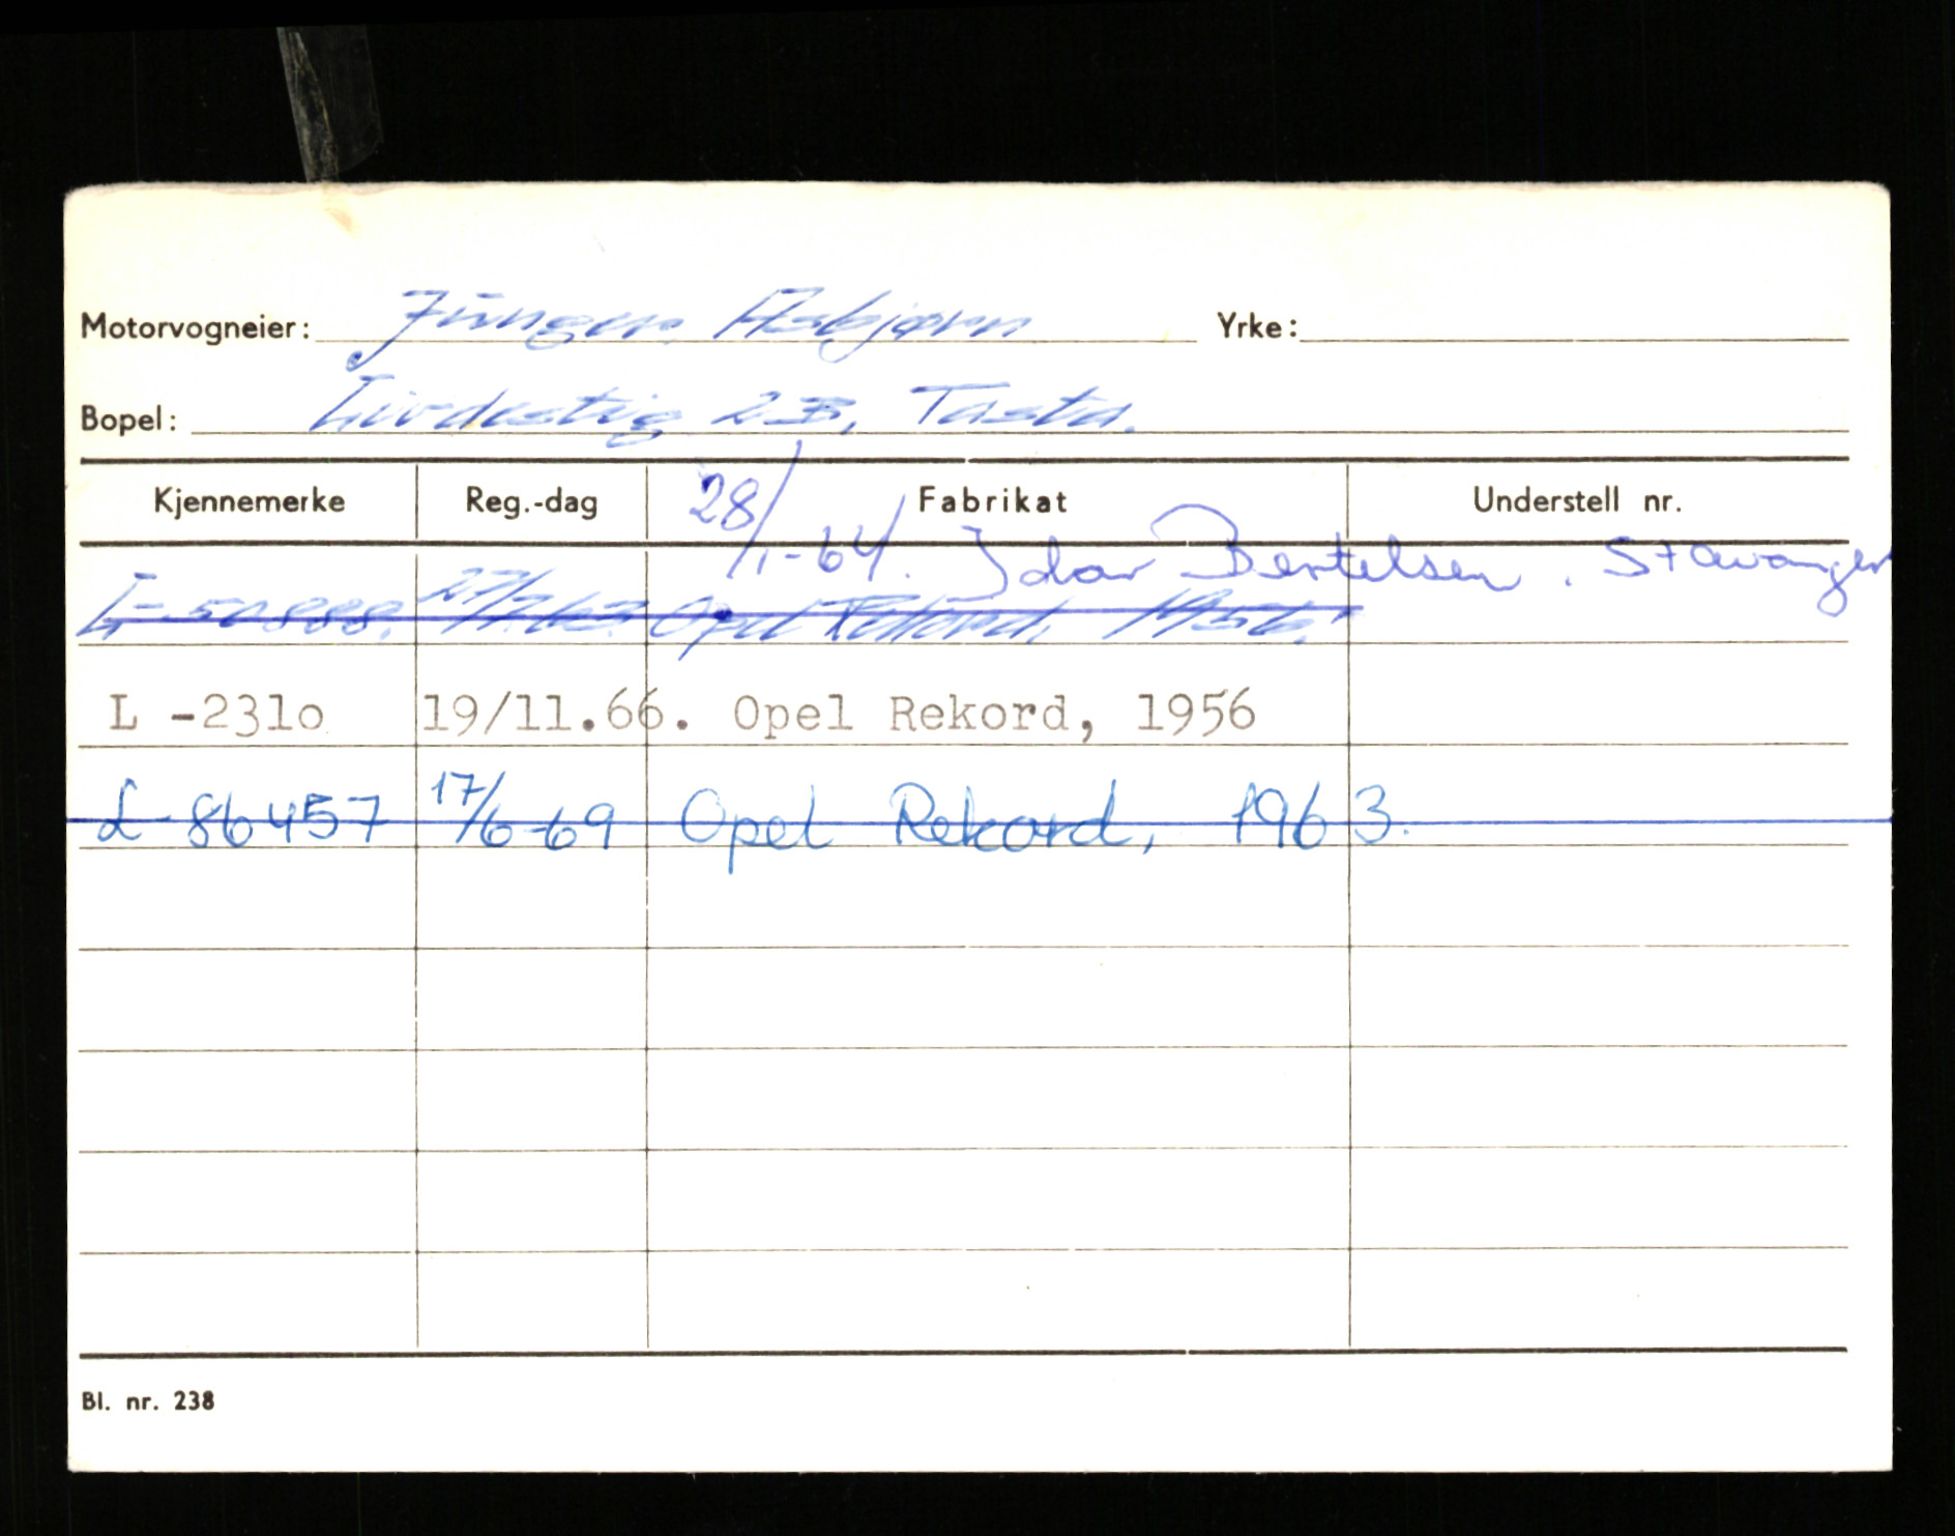 Motorvogneier: Jünger, Asbjørn Yrke:
Bopel: Lindestig 2B, Tasta.
Kjennemerke Reg.-dag Fabrikat Understell nr.
28/1-64. Idar Bertelsen. Stavanger
L-50888. Opel Rekord, 1956.
L -231o 19/11.66. Opel Rekord, 1956
L-86457 17/6-69 Opel Rekord, 1963.
Bl. nr. 238